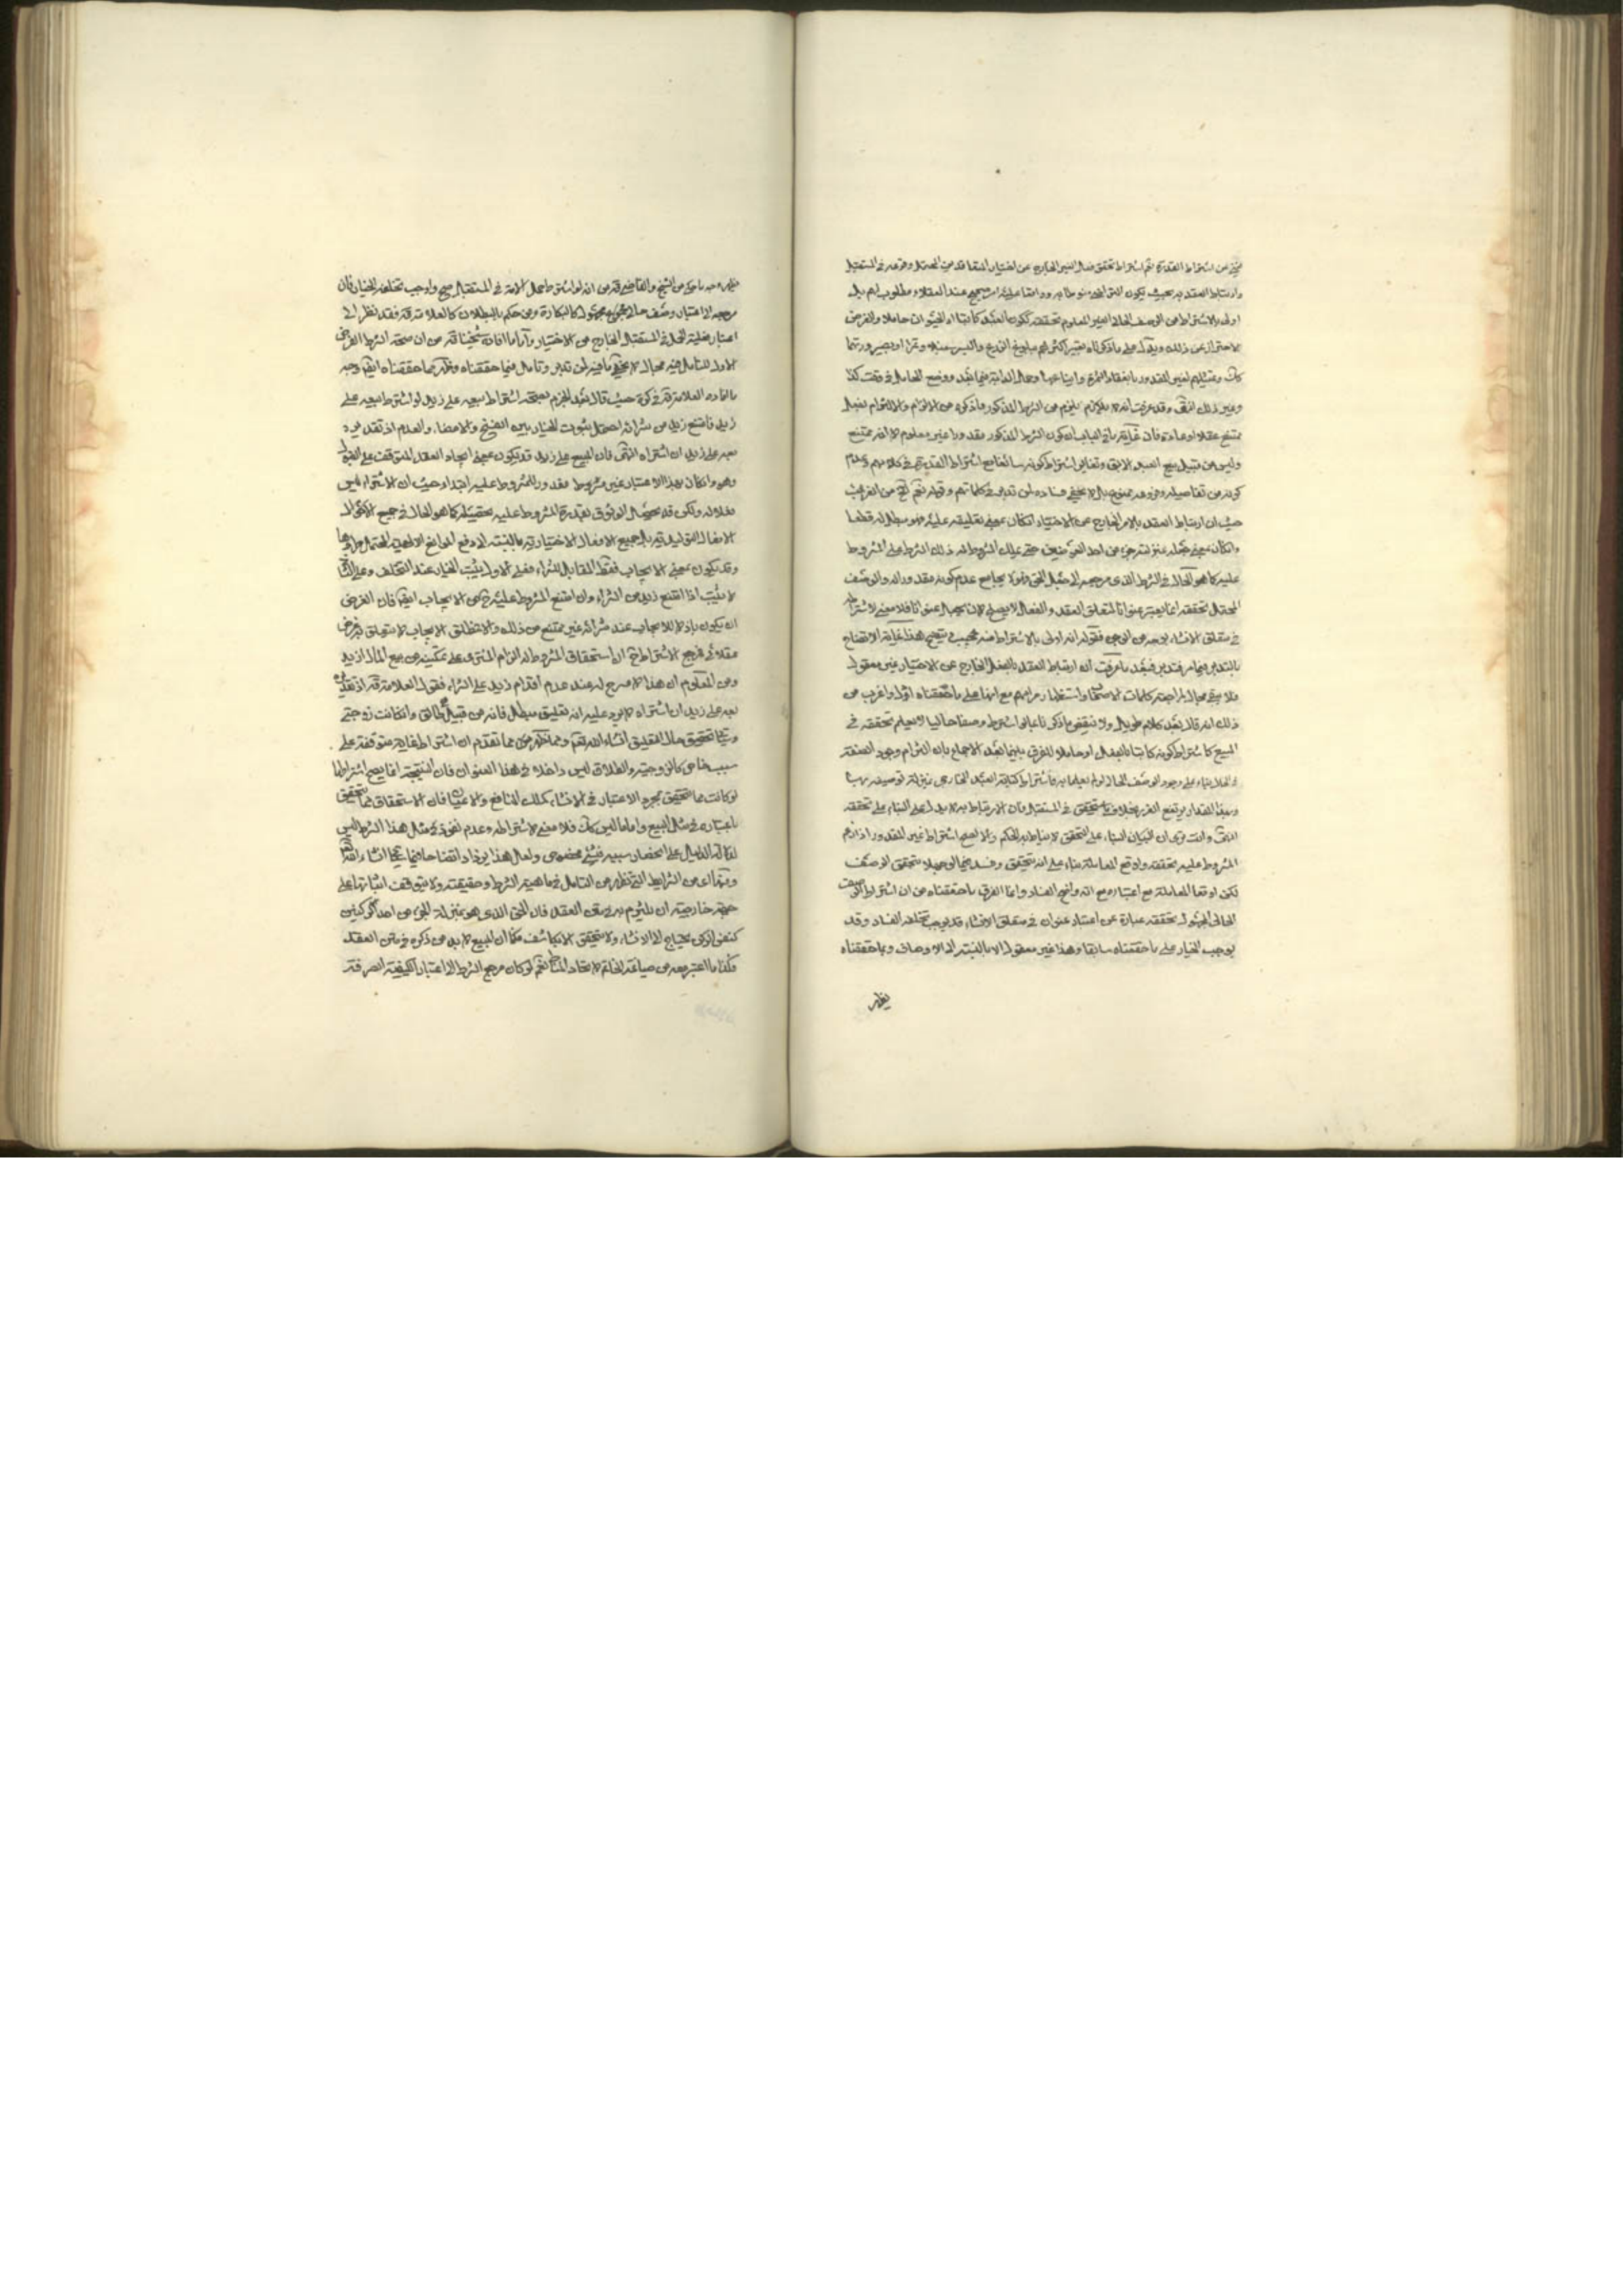 عن اشتراط القدرة نعم اشتراط تحقق فعل الغير الخارج عن اختيار المتعاقدين المحتمل وقوعه في المستقبل
وارتباط العقد به بحيث يكون التراضي منوطا به وواقعا عليه امر صحيح عند العقلاء مطلوب لهم بل
اولى بالاشتراط من الوصف الحالي الغير المعلوم تحققه ككون العبد كاتبا او الحيوان حاملا والغرض
الاحتراز عن ذلك ويدل على ما ذكرناه تعبير اكثرهم ببلوغ الزرع والبسر سنبلا وتمرا او بصيرورتهما
كك وتمثيلهم لغير المقدور بانعقاد الثمرة وايناعها وحمل الدابة فيما بعد ووضع الحامل في وقت كذا
وغير ذلك انتهى وقد عرفت انه لا يلازم من الشرط المذكور وما ذكره من الالزام والالتزام بفعل
ممتنع عقلا او عادة فان غاية ما في الباب ان كون الشرط المذكور مقدورا غير معلوم لا انه ممتنع
وليس من قبيل بيع العبد الابق وتغاير اشتراط كونه سائغا مع اشتراط القدرة في كلامهم وعدم
كونه من تفاصيله وفروعه بمعزل لا يخفى فساده لمن تدبر في كلماتهم وقوله نعم الخ من الغريب
حيث ان ارتباط العقد بالامر الخارج عن الاختيار ان كان بمعنى تعليقه عليه فهو مبطل له قطعا
وان كان بمعنى جعله بمنزلة جزء من احد العوضين حتى يملك المشروط له ذلك الشرط على المشروط
عليه كما هو الحال في الشرط الذي مرجعه الى جعل الحق فهو لا يجامع عدم كونه مقدورا له والوصف
المحتمل تحققه انما يعتبر عنوانا لمتعلق العقد والفعل لا يصلح لان يجعل عنوانا فلا معنى لاشتراطه
في متعلق الانشاء بوجه من الوجوه فقوله انه اولى بالاشتراط منه عجيب ويتضح هذا غاية الاتضاح
بالتدبر فيما مر فتدبر فبعد ما عرفت ان ارتباط العقد بالفعل الخارج عن الاختيار غير معقول
فلا يبقى مجال لمراجعة كلمات الاصحاب واستظهار مرامهم مع انها على ما حققناه اول واغرب من
ذلك انه قال بعد كلام طويل ولا ينقض ما ذكرنا بما لو اشترط وصفا حاليا لا يعلم تحققه في
المبيع كاشتراط كونه كاتبا بالفعل او حاملا للفرق بينهما بعد الاجماع بان التزام وجود الصفة
في الحال بناء على وجود الوصف الحالي ولو لم يعلما به فاشتراط كتابة العبد الخارجي بمنزلة توصيفه بها
وبهذا المقدار يرتفع الغرر بخلاف ما يتحقق في المستقبل فان الارتباط به لا يدل على البناء على تحققه
انتهى وانت ترى ان البناء على التحقق لا يناط به الحكم والا لصح اشتراط غير المقدور اذا زعم
المشروط عليه تحققه واوقع المعاملة بناء على انه يتحقق وفسد فيما لو جهلا بتحقق الوصف
لكن اوقعا المعاملة مع اعتباره مع انه واضح الفساد وانما الفرق ما حققناه من ان اشتراط الوصف
الحالي المجهول تحققه عبارة عن اعتبار عنوان في متعلق الانشاء قد يوجب تخلفه الفساد وقد
يوجب الخيار على ما حققناه سابقا وهذا غير معقول الا بالنسبة الى الاوصاف وبما حققناه
يظهر
يظهر وجه ما حكي عن الشيخ والقاضي قده من انه لو اشترط حمل الامة في المستقبل صح واوجب تخلفه الخيار فان
مرجعه الى اعتبار وصف حالي مجهول كالبكارة ومن حكم بالبطلان كالعلامة قده فقد نظر الى
اعتبار فعلية الحمل في المستقبل الخارج عن الاختيار واما ما افاده شيخنا قده من ان صحة الشرط الغرض
الاول للتامل فيه مجال لا يخفى ما فيه لمن تدبر وتامل فيما حققناه وظهر مما حققناه ايضا وجه
ما افاده العلامة قده في كرة حيث قال بعد الجزم بصحة اشتراط بيعه على زيد لو اشترط بيعه على
زيد فامتنع زيد من شرائه احتمل ثبوت الخيار بين الفسخ والامضاء والعدم اذ تقديره
بعه على زيد ان اشتراه انتهى فان البيع على زيد قد يكون بمعنى ايجاد العقد المتوقف على القبول
وهو وان كان بهذا الاعتبار غير مقدور للمشروط عليه ابتداء حيث ان الاشتراء ليس
فعلا له ولكن قد يحصل الوثوق بقدرة المشروط عليه بتحصيله كما هو الحال في جميع
الافعال التوليدية بل جميع الافعال الاختيارية بالنسبة الى دفع الموانع الالهية المحتمل طروها
وقد يكون بمعنى الايجاب فقط المقابل للشراء فعلى الاول يثبت الخيار عند التخلف وعلى الثاني
لا يثبت اذا امتنع زيد من الشراء وان امتنع المشروط عليه من الايجاب ايضا فان الغرض
ان يكون باذلا للايجاب عند شرائه غير ممتنع من ذلك والا فمطلق الايجاب لا يتعلق به غرض
عقلائي فمرجع الاشتراط الى استحقاق المشروط له الزام المشتري على تمكينه من بيع المال لزيد
ومن المعلوم ان هذا لا مسرح له عند عدم اقدام زيد على الشراء فقول العلامة قده اذ تقديره
بعه على زيد ان اشتراه لا يرد عليه انه تعليق مبطل فانه من قبيل طالق وان كانت زوجتي
وسياتي تحقيق حال التعليق انشاء الله تعالى ومما تقدم ان اشتراط الغاية متوقفة على
سبب خاص كالزوجية والطلاق ليس داخلا في هذا العنوان فان النتيجة انما يصح اشتراطها
لو كانت مما يتحقق بمجرد الاعتبار في الانشاء كملك المنافع والاعيان فان الاستحقاق مما يتحقق
باعتباره في مثل البيع واما ما ليس كك فلا معنى لاشتراطه وعدم نفوذ مثل هذا الشرط ليس
لدلالة الدليل على انحصار سببه في شيء مخصوص ولعل هذا يزداد اتضاحا فيما سيجيء انشاء الله
ومما عد من الشرايط التي تظهر من التامل في ماهية الشرط وحقيقته ولا يتوقف اثباتها على
حجة خارجية ان يلتزم به في متن العقد فان الحق الذي هو بمنزلة الجزء من احد الركنين
كنفس الركن يحتاج الى الانشاء ولا يتحقق الا بكاشف فكما ان المبيع لا بد من ذكره في متن العقد
فكذا ما اعتبر معه من صياغة الخاتم لاتحاد المناط نعم لو كان مرجع الشرط الى اعتبار الكيفية الصرفة